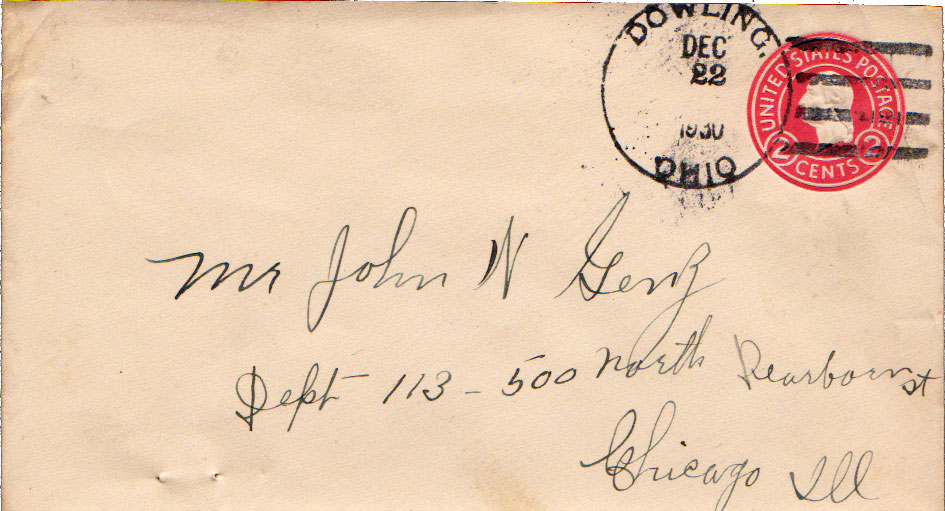 DOWLING.
DEC
22
1930
OHIO
UNITED STATES POSTAGE
2 CENTS 2
Mr John N Genz
Dept 113 - 500 North Dearborn st
Chicago Ill